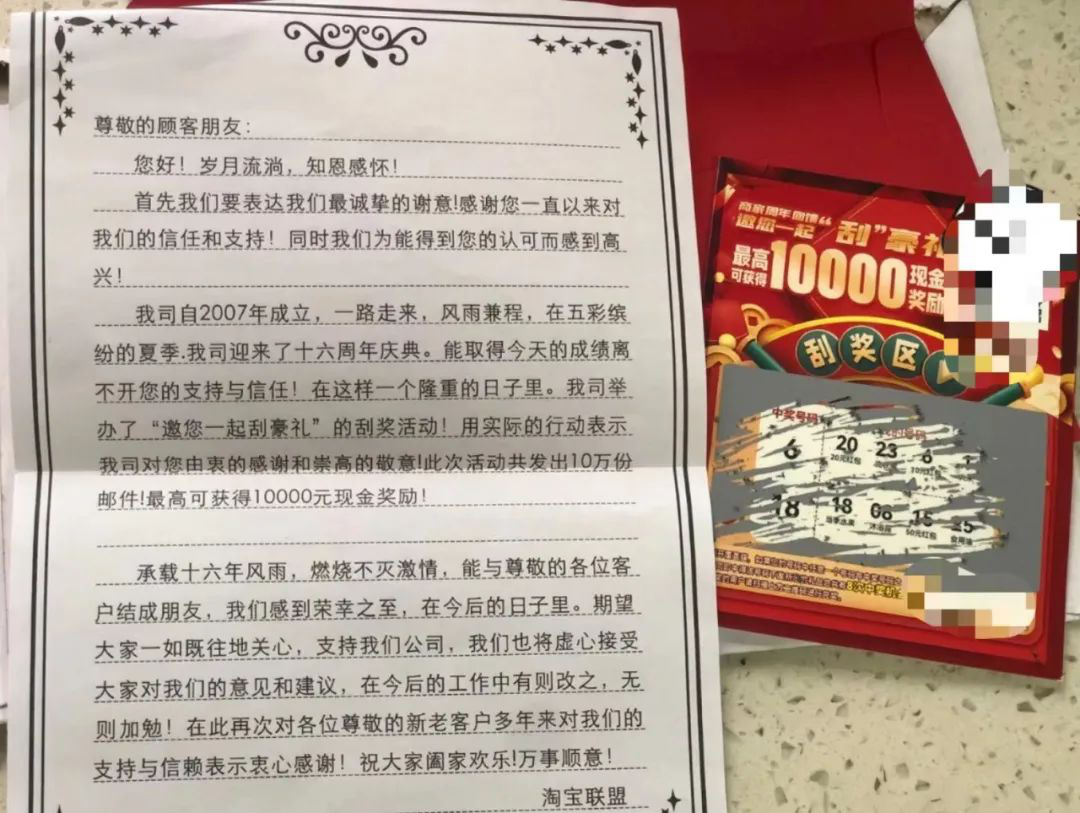 尊敬的顾客朋友：
您好！岁月流淌，知恩感怀！
首先我们要表达我们最诚挚的谢意!感谢您一直以来对
我们的信任和支持！同时我们为能得到您的认可而感到高
兴！
我司自2007年成立，一路走来，风雨兼程，在五彩缤
纷的夏季.我司迎来了十六周年庆典。能取得今天的成绩离
不开您的支持与信任！在这样一个隆重的日子里。我司举
办了“邀您一起刮豪礼”的刮奖活动！用实际的行动表示
我司对您由衷的感谢和崇高的敬意!此次活动共发出10万份
邮件!最高可获得10000元现金奖励！
承载十六年风雨，燃烧不灭激情，能与尊敬的各位客
户结成朋友，我们感到荣幸之至，在今后的日子里。期望
大家一如既往地关心，支持我们公司，我们也将虚心接受
大家对我们的意见和建议，在今后的工作中有则改之，无
则加勉！在此再次对各位尊敬的新老客户多年来对我们的
支持与信赖表示衷心感谢！祝大家阖家欢乐!万事顺意！
淘宝联盟
商家周年回馈
邀您一起“刮”豪礼
最高可获得10000现金奖励
刮奖区
中奖号码
6 20 23 6
20元红包
18 18 08 15
当季水果 沐浴露 50元红包 食用油
8次中奖机会